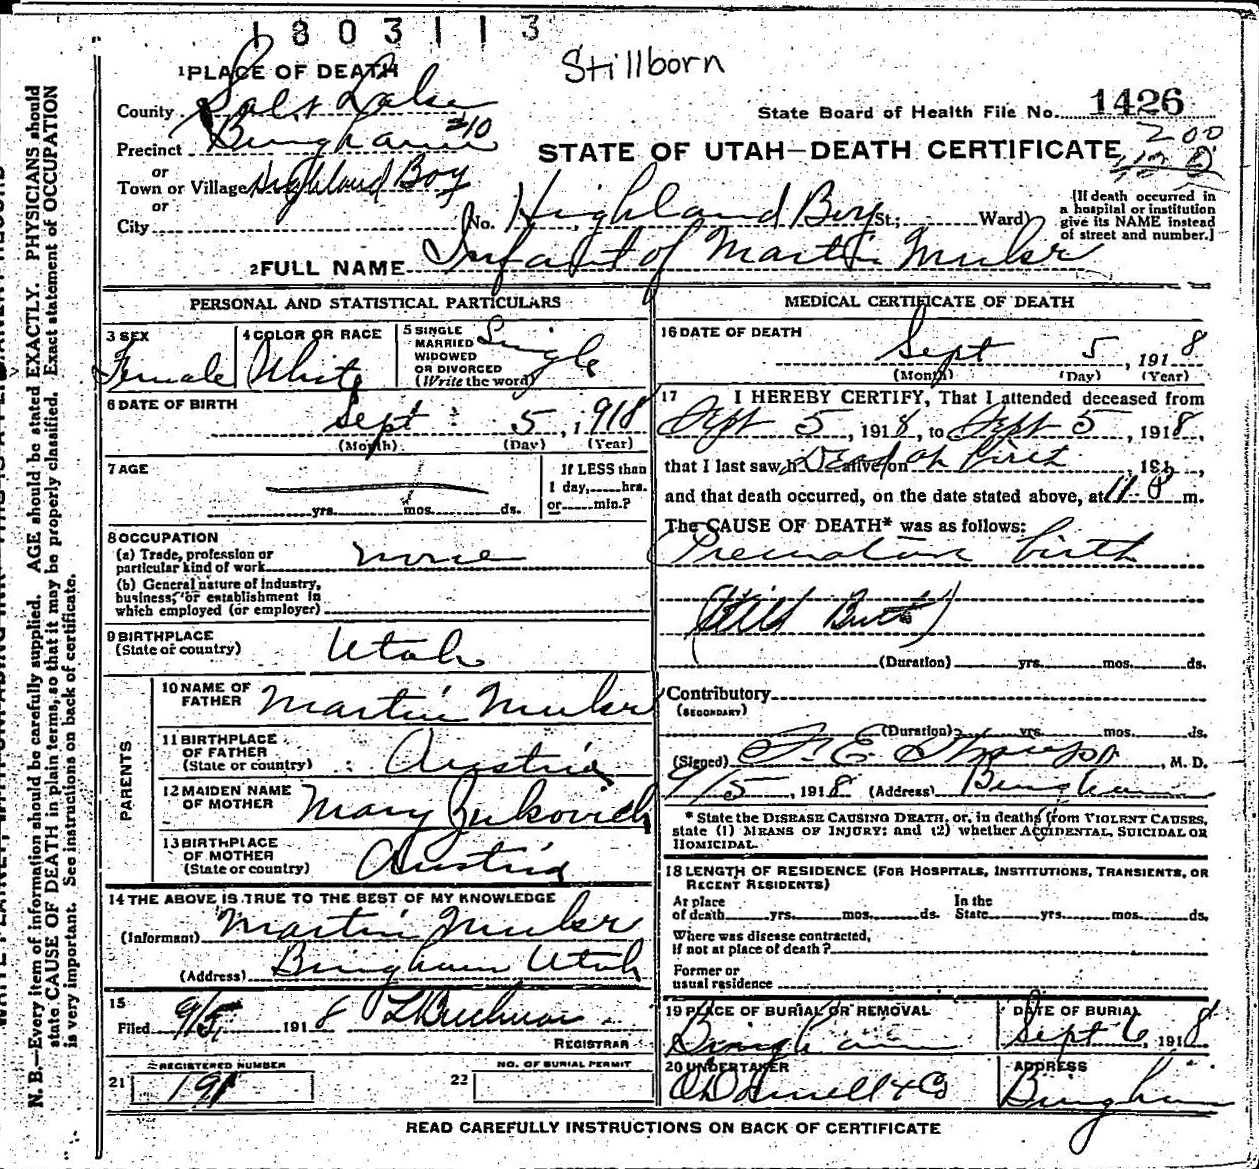 1803113
Stillborn
1 PLACE OF DEATH
County Salt Lake
State Board of Health File No. 1426
Precinct Bingham #10
200
STATE OF UTAH—DEATH CERTIFICATE
or
Town or Village Highland Boy
or
City
No. Highland Boy St.; Ward)
[If death occurred in
a hospital or institution
give its NAME instead
of street and number.]
2 FULL NAME Infant of Martin
PERSONAL AND STATISTICAL PARTICULARS
3 SEX
Female
4 COLOR OR RACE
White
5 SINGLE
MARRIED
WIDOWED
OR DIVORCED
(Write the word)
Single
6 DATE OF BIRTH
Sept 5, 1918
(Month) (Day) (Year)
7 AGE
yrs. mos. ds.
If LESS than
1 day, hrs.
or min.?
8 OCCUPATION
(a) Trade, profession or
particular kind of work none
(b) General nature of industry,
business, or establishment in
which employed (or employer)
9 BIRTHPLACE
(State or country) Utah
PARENTS
10 NAME OF
FATHER Martin
11 BIRTHPLACE
OF FATHER
(State or country) Austria
12 MAIDEN NAME
OF MOTHER Mary Zurkovich
13 BIRTHPLACE
OF MOTHER
(State or country) Austria
14 THE ABOVE IS TRUE TO THE BEST OF MY KNOWLEDGE
(Informant) Martin
(Address) Bingham Utah
15
Filed 9/5, 1918
REGISTRAR
REGISTERED NUMBER
21 191
NO. OF BURIAL PERMIT
22
MEDICAL CERTIFICATE OF DEATH
16 DATE OF DEATH
Sept 5, 1918
(Month) (Day) (Year)
17 I HEREBY CERTIFY, That I attended deceased from
Sept 5, 1918, to Sept 5, 1918,
that I last saw h alive on Dead at birth, 191
and that death occurred, on the date stated above, at 11 m.
The CAUSE OF DEATH* was as follows:
Premature birth
(Still Birth)
(Duration) yrs. mos. ds.
Contributory
(SECONDARY)
(Duration) yrs. mos. ds.
(Signed) F. E. , M. D.
9/5, 1918 (Address) Bingham
* State the DISEASE CAUSING DEATH, or, in deaths from VIOLENT CAUSES,
state (1) MEANS OF INJURY; and (2) whether ACCIDENTAL, SUICIDAL OR
HOMICIDAL.
18 LENGTH OF RESIDENCE (FOR HOSPITALS, INSTITUTIONS, TRANSIENTS, OR
RECENT RESIDENTS)
At place
of death yrs. mos. ds.
In the
State yrs. mos. ds.
Where was disease contracted,
if not at place of death?
Former or
usual residence
19 PLACE OF BURIAL OR REMOVAL
Bingham
DATE OF BURIAL
Sept 6, 1918
20 UNDERTAKER
& Co
ADDRESS
Bingham
READ CAREFULLY INSTRUCTIONS ON BACK OF CERTIFICATE
N. B.—Every item of information should be carefully supplied. AGE should be stated EXACTLY. PHYSICIANS should
state CAUSE OF DEATH in plain terms, so that it may be properly classified. Exact statement of OCCUPATION
is very important. See instructions on back of certificate.